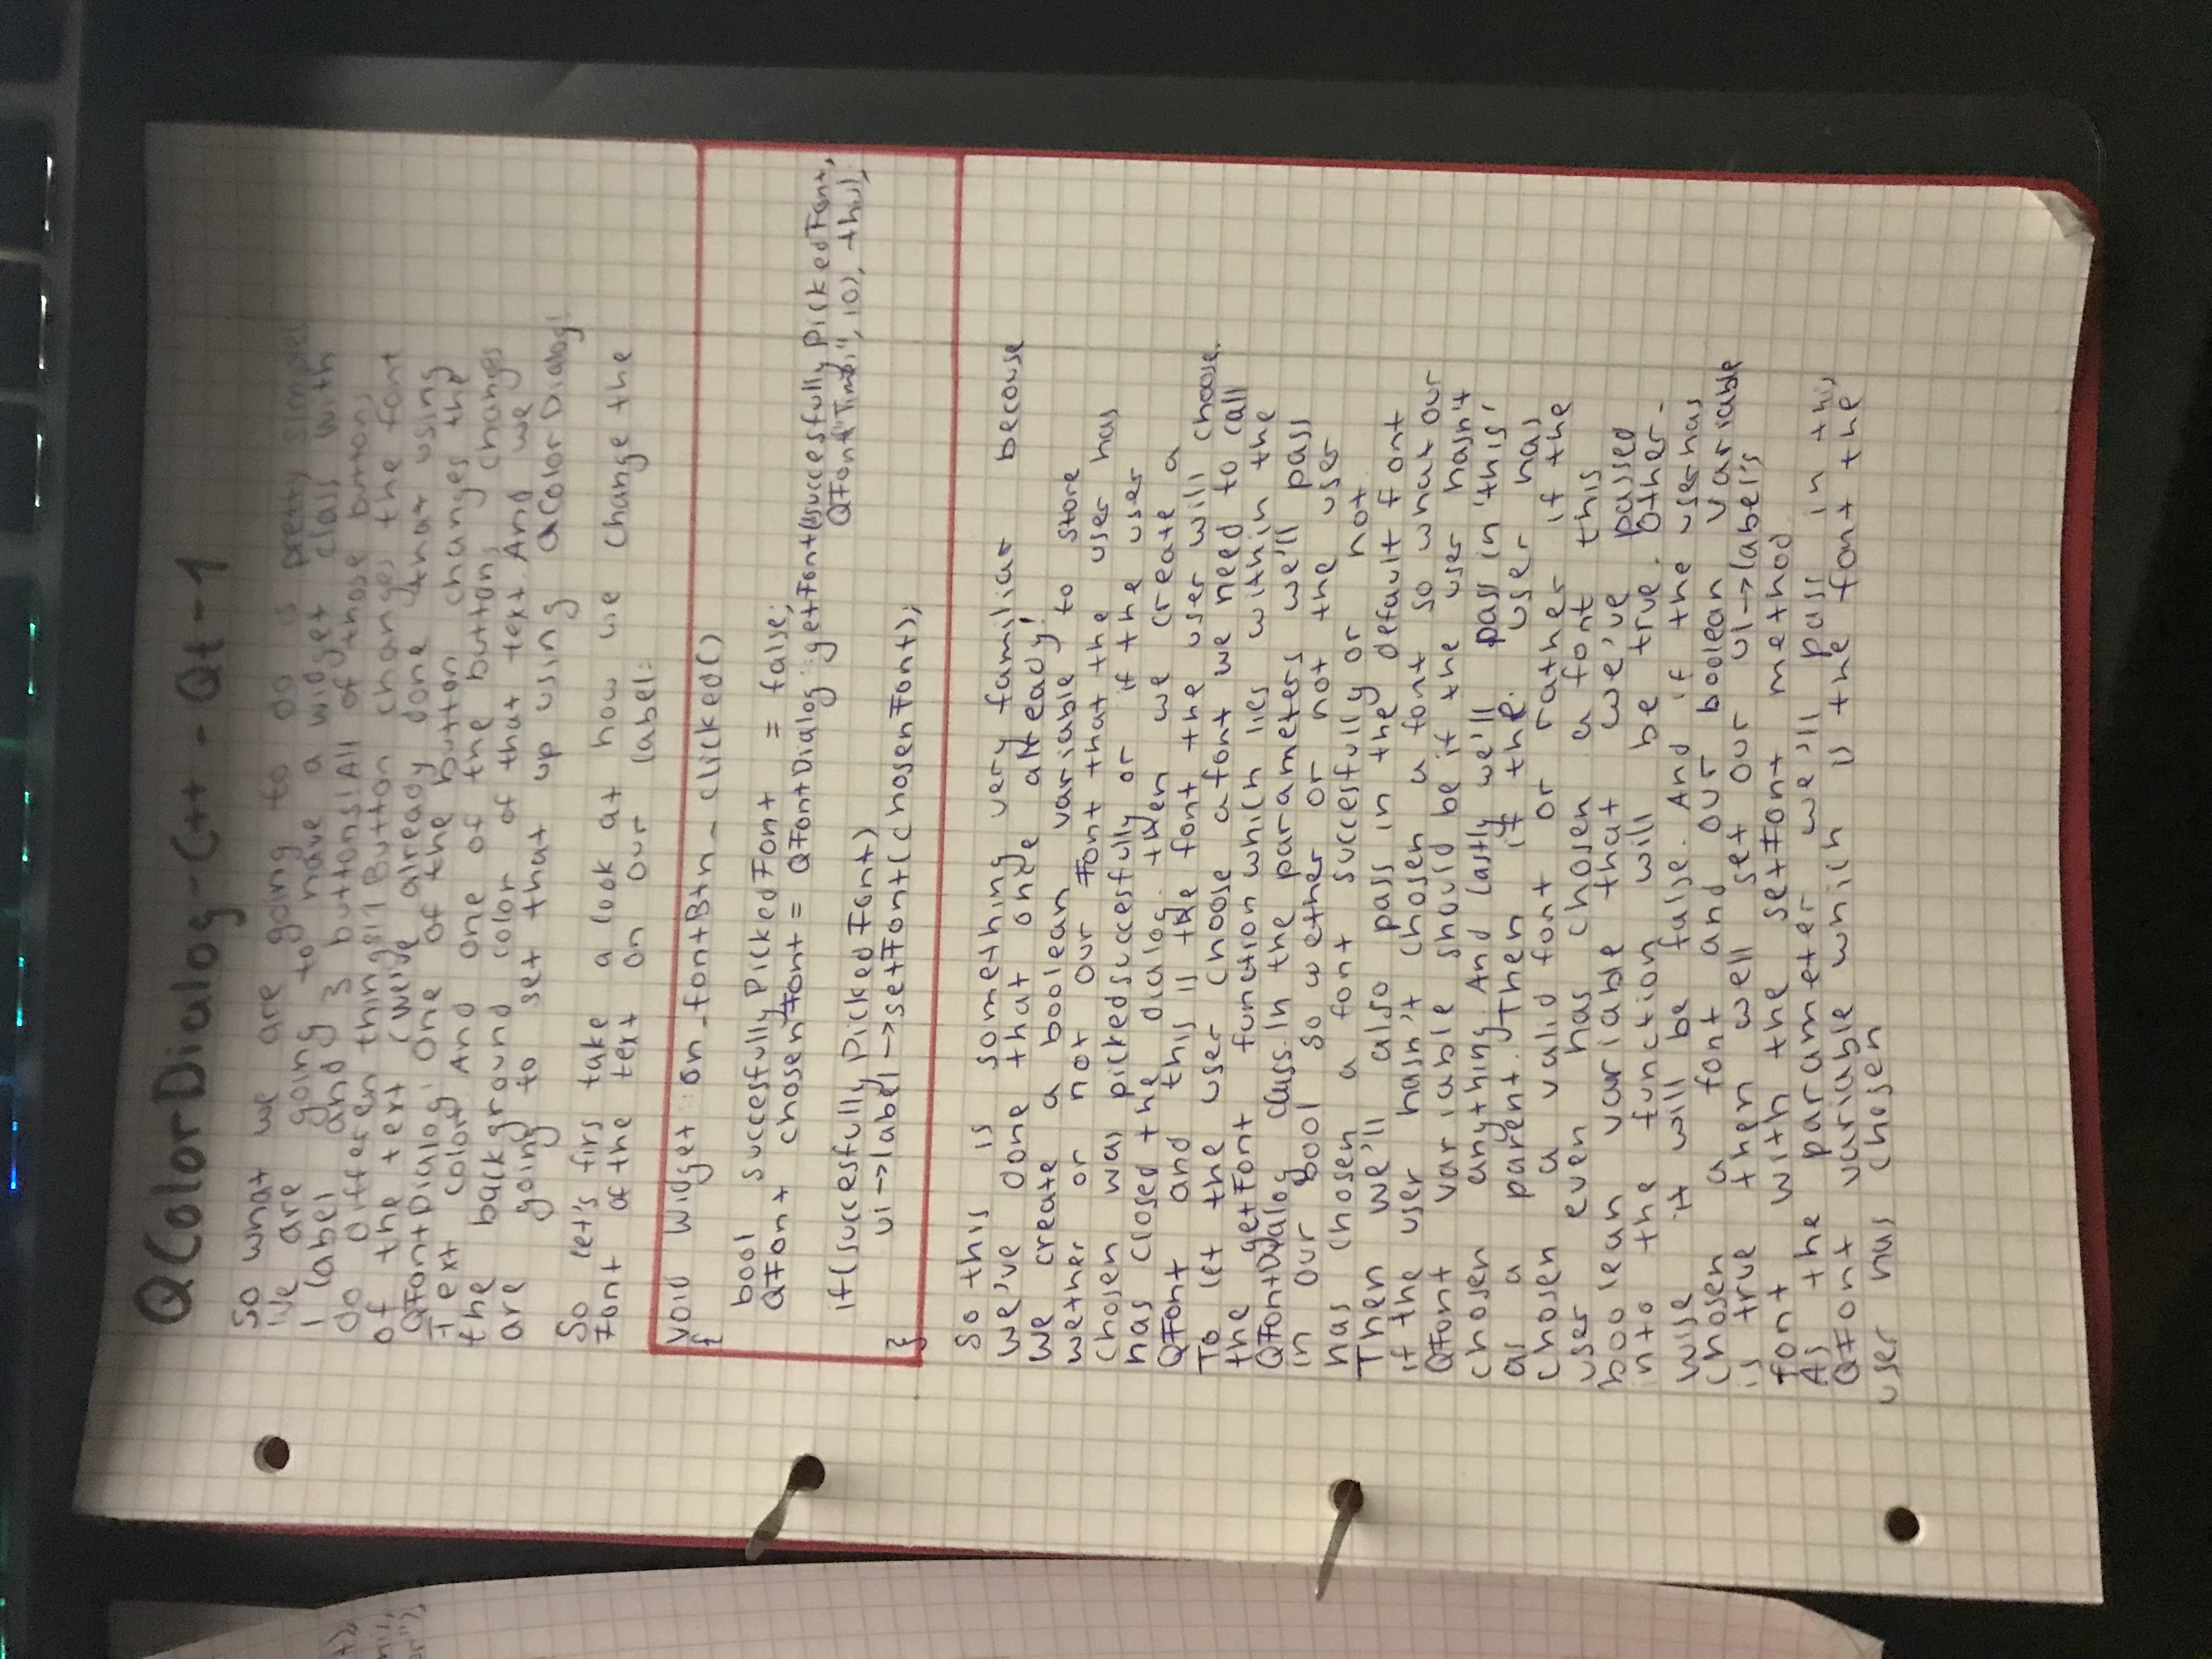 QColorDialog-C++ - Qt-1
So what we are going to do is pretty simple!
We are going to have a widget class with
1 label and 3 buttons! All of those buttons
do differen things! 1 Button changes the font
of the text (we've already done that using
QFontDialog! One of the button changes the
Text color! And one of the buttons changes
the background color of that text And we
are going to set that up using QColorDialog!
So let's firs take a look at how we change the
Font of the text on our label:
void Widget::on_fontBtn_clicked()
{
bool succesfullyPickedFont = false;
QFont chosenFont = QFontDialog::getFont(&succesfullyPickedFont,
QFont("Times", 10), this);
if(succesfullyPickedFont)
ui->label->setFont(chosenFont);
}
So this is something very familiar becouse
we've done that once already!
We create a boolean variable to store
wether or not our Font that the user has
chosen was picked succesfully or if the user
has closed the dialog. then we create a
QFont and this is the font the user will choose.
To let the user choose a font we need to call
the getFont function which lies within the
QFontDialog class. In the parameters we'll pass
in our bool so wether or not the user
has chosen a font succesfully or not
Then we'll also pass in the default font
if the user hasn't chosen a font so what our
QFont variable should be if the user hasn't
chosen anything. And lastly we'll pass in 'this'
as a parent. Then if the user has
chosen a valid font or rather if the
user even has chosen a font this
boolean variable that we've passed
into the function will be true. Other-
wise it will be false. And if the user has
chosen a font and our boolean variable
is true then well set our ui->label's
font with the setFont method
As the parameter we'll pass in this
QFont variable which is the font the
user has chosen